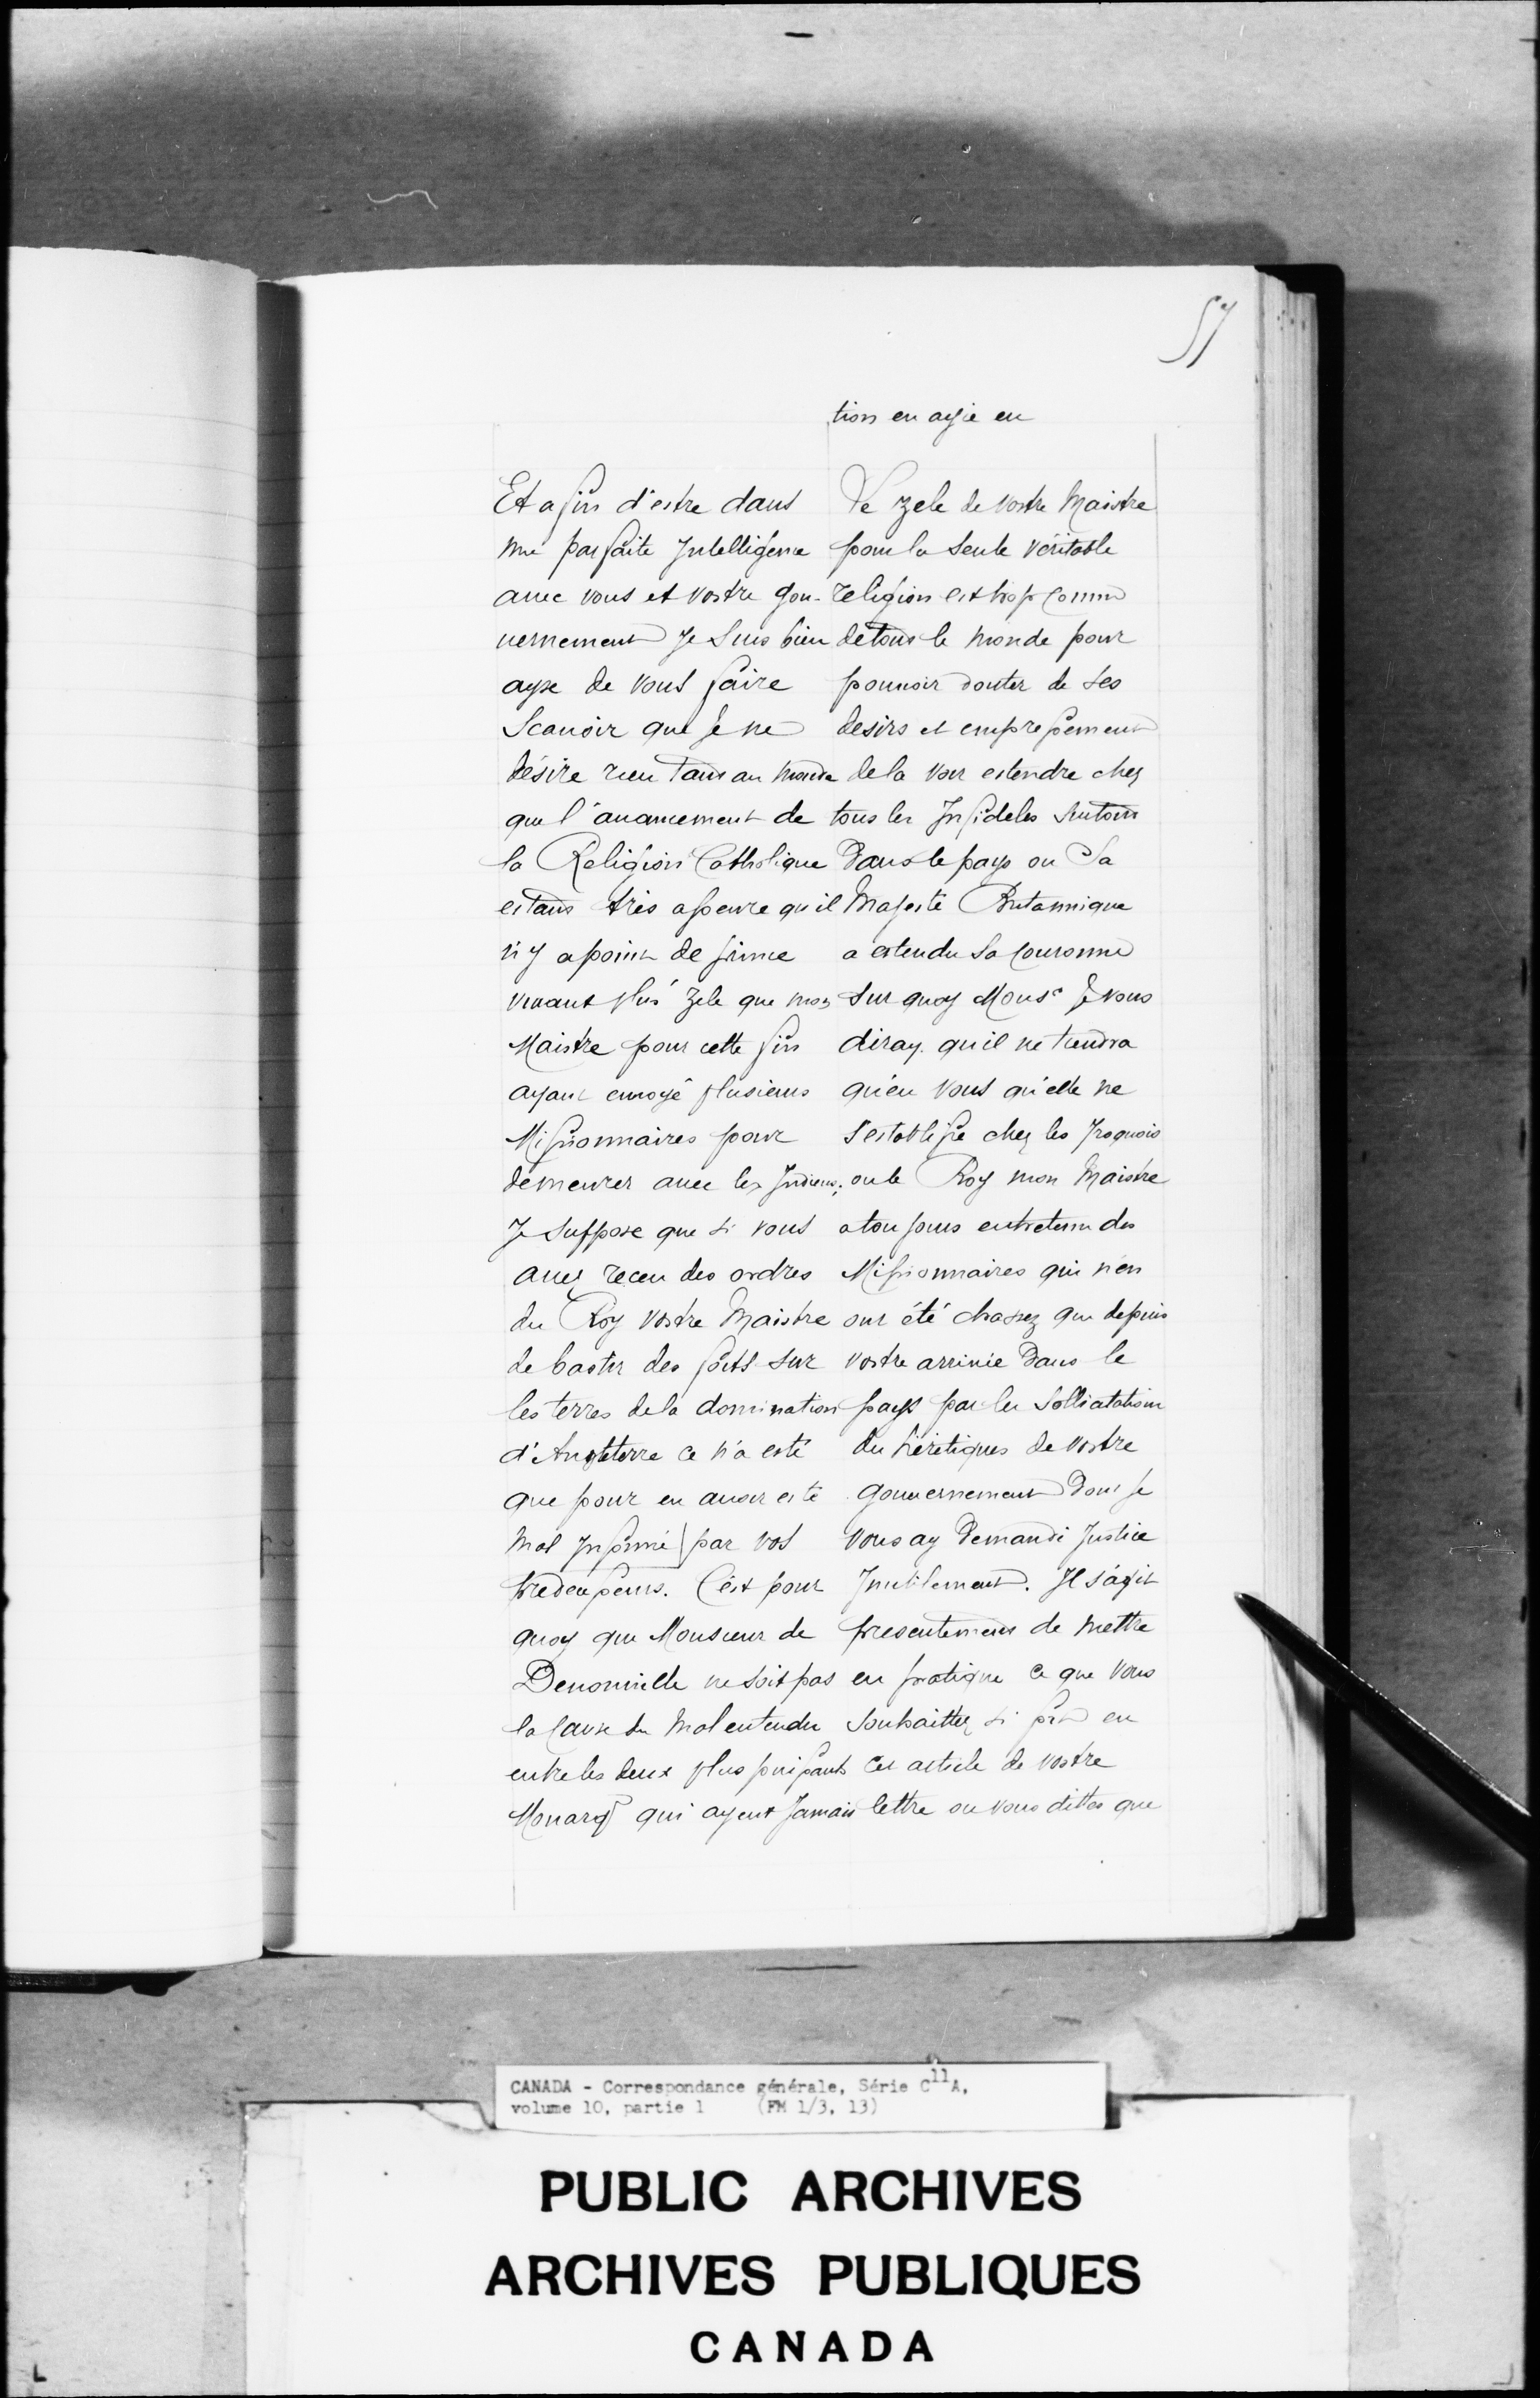 57
tion en ayie en
Et afin d'estre dans
une parfaite Intelligence
auec vous et vostre gou-
uernement Je Suis bien
ayse de vous faire
Scauoir que Je ne
désire rien Tant au monde
que l'auancement de
la Religion Catholique
estans très asseure qu'il
n'y a point de prince
viuant plus zele que mon
Maistre pour cette fin
ayant enuoyé plusieurs
Missionnaires pour
demeurer auec les Indiens;
Je Suppose que si vous
auez receu des ordres
du Roy vostre Maistre
de bastir des forts sur
les terres dela domination
d'Angleterre ce n'a esté
que pour en auoir esté
mal Informé par vos
predecesseurs. C'est pour
quoy que Monsieur de
Denonuille ne soit pas
la Cause du Malentendu
entre les deux plus puissants
Monarq qui ayent Jamais
Le zele de vostre Maistre
pour la seule véritable
religion est trop connu
detout le monde pour
pouuoir douter de ses
desirs et empressement
dela voir estendre chez
tous les Infideles surtout
Dans le pays ou Sa
Majesté Britannique
a estendu Sa Couronne
Sur quoy Monsr Je vous
diray qu'il ne tiendra
qu'en vous qu'elle ne
s'establisse chez les Iroquois
ou le Roy mon Maistre
a toujours entretenu des
Missionnaires qui n'en
ont été chassez que depuis
vostre arriuée Dans le
pays par les Sollicitations
des hérétiques de vostre
gouuernement Dont Je
vous ay Demandé Justice
Inutilement. Il s'agit
presentement de mettre
en pratique ce que vous
Souhaittez si fort en
cet article de vostre
lettre ou vous dittes que
CANADA - Correspondance générale, Série C11A,
volume 10, partie 1 (FM 1/3, 13)
PUBLIC ARCHIVES
ARCHIVES PUBLIQUES
CANADA
L